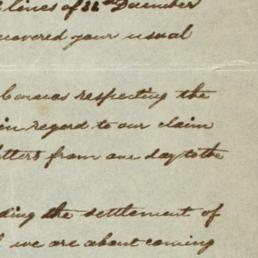 lines of 22nd December
recovered your usual
respecting the
in regard to our claim
letters from one day to the
ding the settlement of
we are about coming